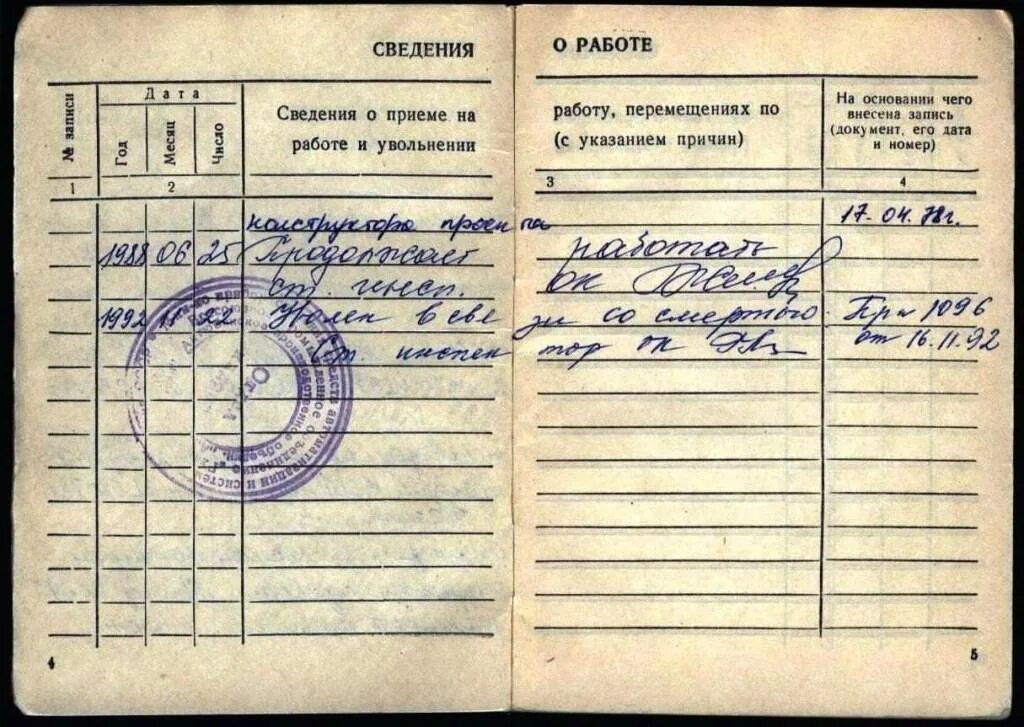 СВЕДЕНИЯ
О РАБОТЕ
№ записи
Дата
Год
Месяц
Число
Сведения о приеме на
работе и увольнении
работу, перемещениях по
(с указанием причин)
На основании чего
внесена запись
(документ, его дата
и номер)
1
2
3
4
конструктора проекта 17.04.78г.
1988 06 25 Продолжает работать
ст. инсп. ок
1992 11 22 Уволен в связи со смертью. Пр. 1096
Ст. инспектор ок от 16.11.92
4
5